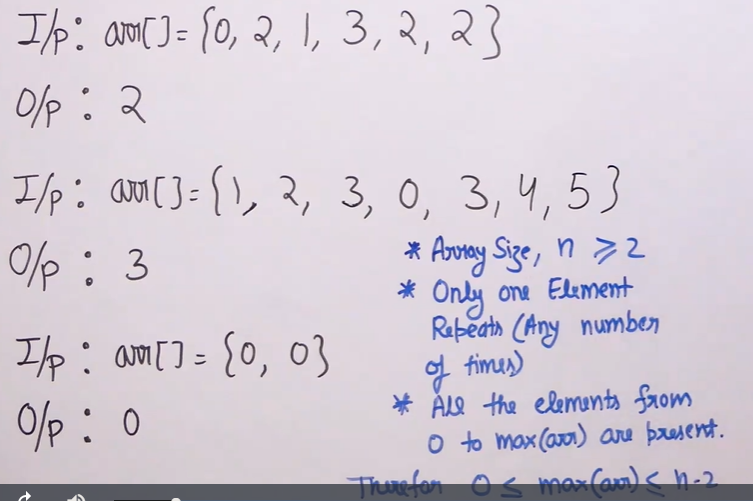 I/p: arr[] = {0, 2, 1, 3, 2, 2}
O/p : 2
I/p: arr[] = {1, 2, 3, 0, 3, 4, 5}
O/p : 3
* Array Size, n ≥ 2
* Only one Element
Repeats (Any number
of times)
I/p : arr[] = {0, 0}
O/p : 0
* All the elements from
0 to max(arr) are present.
Therefor 0 ≤ max(arr) < n-2